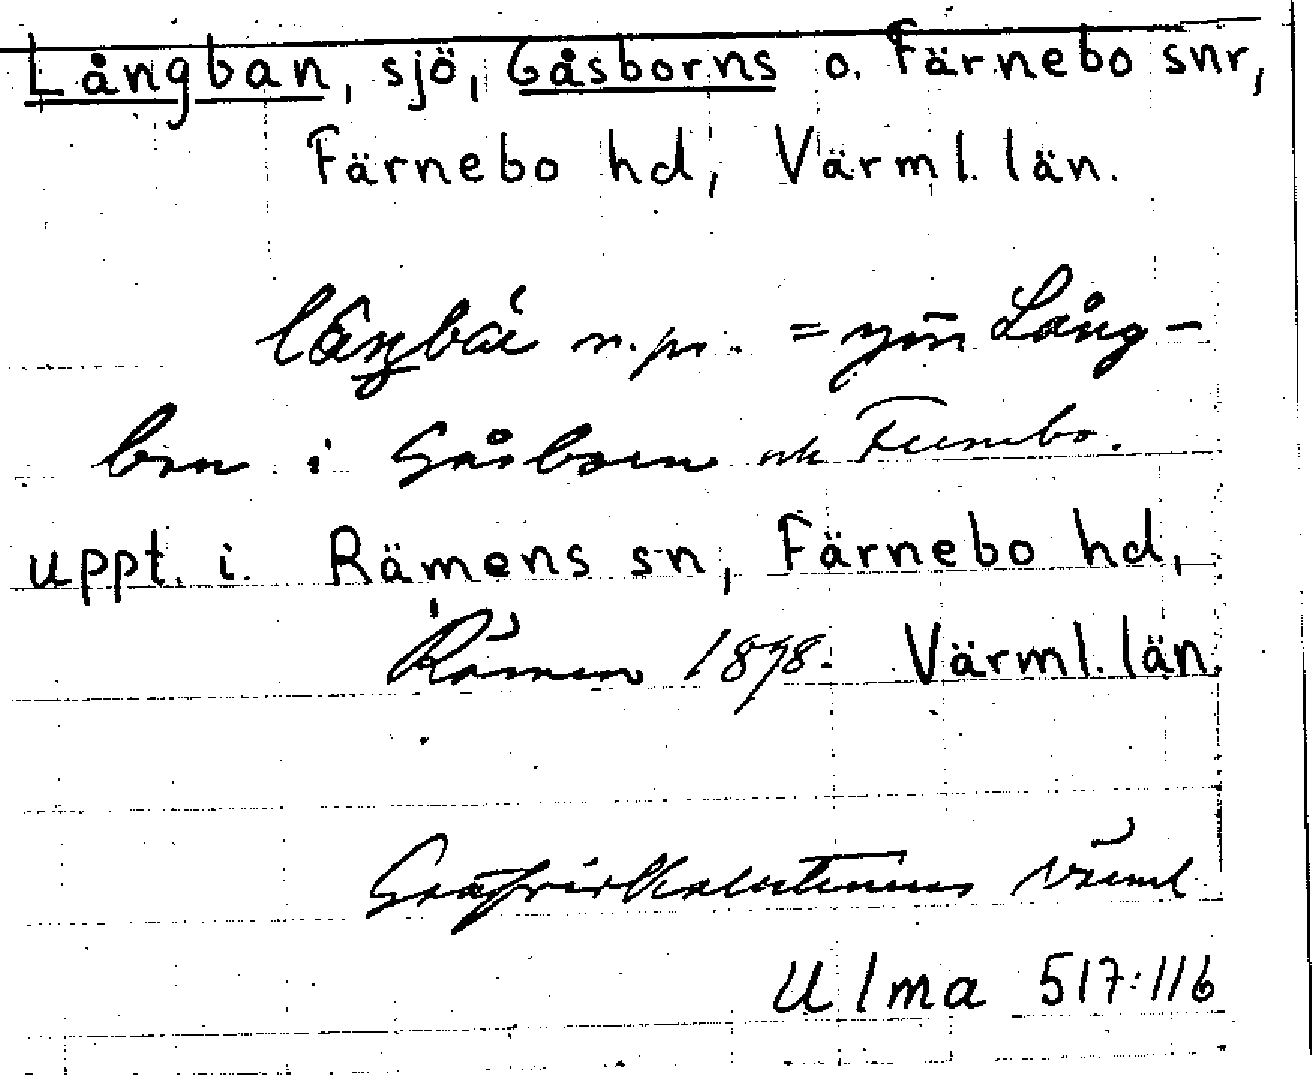 Långban, sjö, Gåsborns o. Färnebo snr,
Färnebo hd, Värml. län.
n. pr. = sjön Lång-
ban i Gåsborn och Färnebo.
uppt. i. Rämens sn, Färnebo hd,
Rämen 1898. Värml. län.
Värml
Ulma 517:116